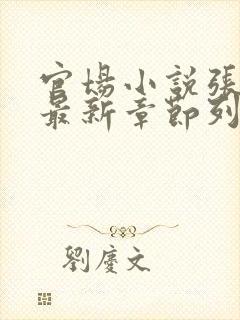 官場小說張
最新章節列
劉慶文